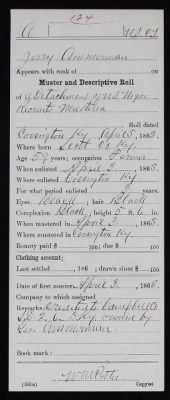 124
A U.S.C.T.
Jerry Ammerman
Appears with rank of
Muster and Descriptive Roll
of a Detachment of U.S. Negro
Recruits Mustered
Roll dated
Covington Ky April 5, 1865.
Where born Scott Co Ky
Age 54 years; occupation Farmer
When enlisted April 3, 1865.
Where enlisted Covington Ky
For what period enlisted 3 years.
Eyes Black; hair Black
Complexion Black; height 5 ft. 6 in.
When mustered in April 3, 1865.
Where mustered in Covington Ky
Bounty paid $ 100; due $ 100
Clothing account:
Last settled , 186 ; drawn since $ 100
Date of first muster April 3, 1865.
Company to which assigned
Remarks: Credited to Campbell Co
6 Ky owned by
Ammerman
Book mark:
(356a) Copyist.